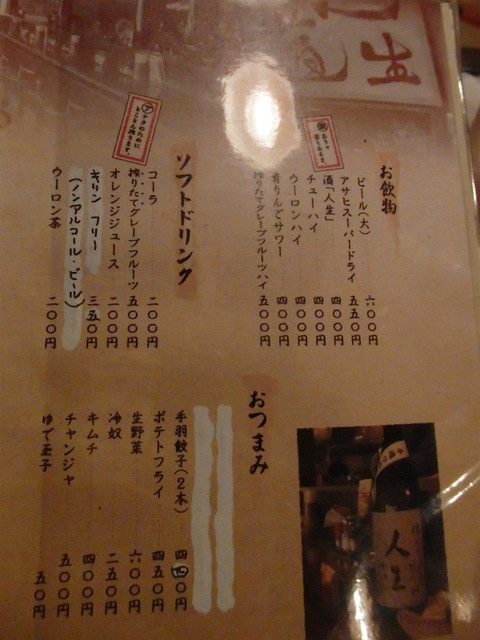 人生
お飲物
ビール(大) 六〇〇円
アサヒスーパードライ 五五〇円
酒「人生」 四〇〇円
チューハイ 四〇〇円
ウーロンハイ 四〇〇円
青りんごサワー 四〇〇円
搾りたてグレープフルーツハイ 五〇〇円
ソフトドリンク
アナタのために
とことん搾ります。
コーラ 二〇〇円
搾りたてグレープフルーツ 五〇〇円
オレンジジュース 二〇〇円
キリン フリー 三五〇円
(ノンアルコール・ビール)
ウーロン茶 二〇〇円
おつまみ
手羽餃子(2本) 四四〇円
ポテトフライ 四五〇円
生野菜 六〇〇円
冷奴 二五〇円
キムチ 四〇〇円
チャンジャ 五〇〇円
ゆで玉子 五〇円
人生